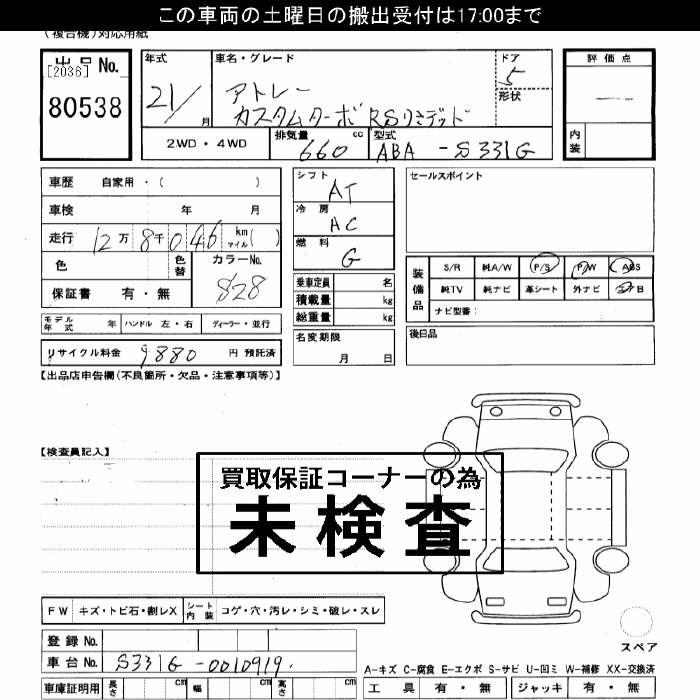 この車両の土曜日の搬出受付は17:00まで
(複合機)対応用紙
出品 No.
[2036]
80538
年式
21/ 月
車名・グレード
アトレー
カスタムターボ RSリミテッド
ドア
5
形状
評価点
内装
2WD・4WD
排気量 660 cc
型式 ABA-S331G
車歴 自家用・( )
車検 年 月
走行 12万 8千 046 km マイル( )
色 色替 カラーNo.
S28
保証書 有・無
モデル年式 年 ハンドル 左・右 ディーラー・並行
リサイクル料金 9880 円 預託済
シフト
AT
冷房
AC
燃料
G
乗車定員 名
積載量 kg
総重量 kg
名変期限
月 日
セールスポイント
装備品
S/R 純A/W P/S P/W ABS
純TV 純ナビ 革シート 外ナビ
ナビ型番:
後日品
【出品店申告欄(不良箇所・欠品・注意事項等)】
【検査員記入】
買取保証コーナーの為
未検査
FW キズ・トビ石・割レX シート内装 コゲ・穴・汚レ・シミ・破レ・スレ
登録 No.
車台 No. S331G-0010919.
車庫証明用 長さ cm 幅 cm 高さ cm
スペア
A-キズ C-腐食 E-エクボ S-サビ U-凹ミ W-補修 XX-交換済
工具 有・無 ジャッキ 有・無